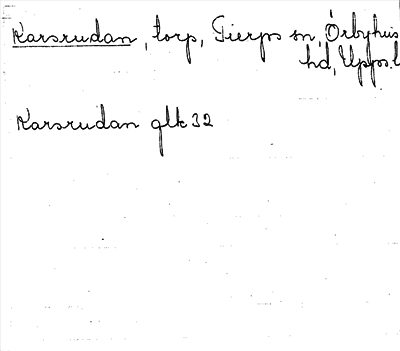 Karsrudan, torp, Tierps sn, Örbyhus
hd, Upps.l
Karsrudan glk 32